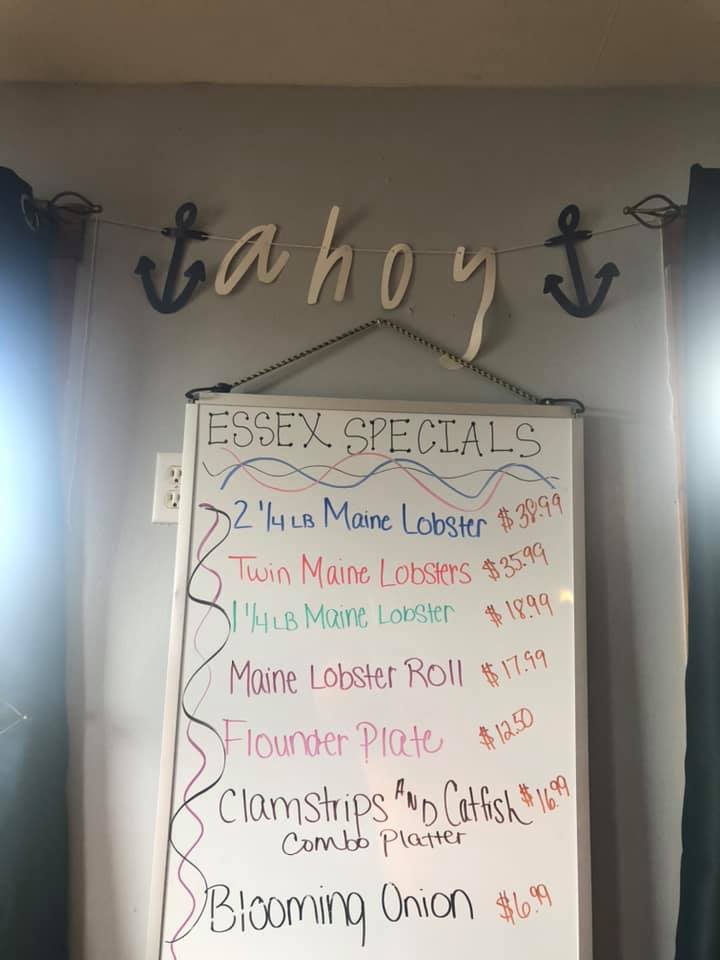 ahoy
ESSEX SPECIALS
2 1/4 LB Maine Lobster $38.99
Twin Maine Lobsters $35.99
1 1/4 LB Maine Lobster $18.99
Maine Lobster Roll $17.99
Flounder Plate $12.50
Clamstrips AND Catfish $16.99
Combo Platter
Blooming Onion $6.99